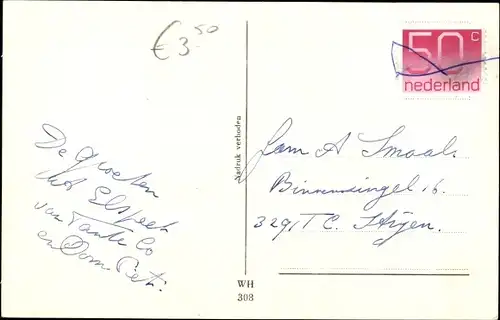 € 3.50
50 c
nederland
De groeten
uit Elspeet
van Tante Co
en Oom Piet.
Nadruk verboden
WH
308
Fam A Smaal
Binnensingel 16.
3291 TC. Strijen.